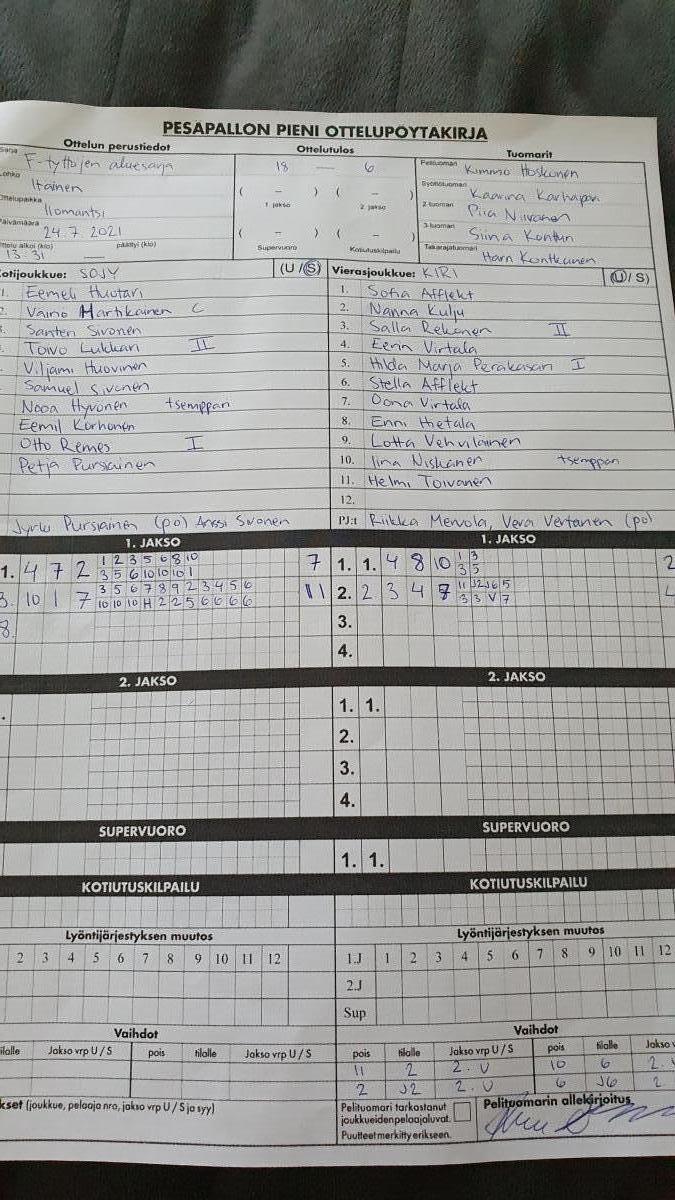 PESÄPALLON PIENI OTTELUPÖYTÄKIRJA
Ottelun perustiedot Ottelutulos Tuomarit
Sarja F-tyttöjen aluesarja 18 — 6 Pelituomari Kimmo Hoskonen
Lohko Itäinen ( – ) ( – ) Syöttötuomari Kaarina Karhapää
Ottelupaikka Ilomantsi 1 jakso 2 jakso 2-tuomari Piia Niivanen
Päivämäärä 24.7.2021 ( – ) ( – ) 3-tuomari Siina
Ottelu alkoi (klo) 13.31 päättyi (klo) — Supervuoro Kotiutuskilpailu Takarajatuomari Kontkanen
Kotijoukkue: SOJY (U/S) Vierasjoukkue: KIRI (U/S)
1. Eemeli Huotari 1. Sofia Afflekt
2. Väinö Martikainen C 2. Nanna Kulju
Santeri Sivonen 3. Salla Rekonen II
Toivo Lukkari II 4. Eerin Virtala
Viljami Huovinen 5. Hilda Marja Peräkasari I
Samuel Sivonen 6. Stella Afflekt
Nooa Hyvönen tsemppari 7. Oona Virtala
Eemil Korhonen 8. Enni Hietala
Otto Remes I 9. Lotta Vehviläinen
Petja Pursiainen 10. Iina Niskanen tsemppari
11. Helmi Toivanen
12.
Jyrki Pursiainen (po) Anssi Sivonen PJ:t Riikka Mervola, Vera Vertanen (po)
1. JAKSO 1. JAKSO
1 2 3 5 6 8 10 1 3
1. 4 7 2 3 5 6 10 10 10 1 7 1. 1. 4 8 10 3 5 2
3 5 6 7 8 9 2 3 4 5 6 11 J2 J6 5
3. 10 1 7 10 10 10 H 2 2 5 6 6 6 6 11 2. 2 3 4 8 3 3 V 7
8. 3.
4.
2. JAKSO 2. JAKSO
1. 1.
2.
3.
4.
SUPERVUORO SUPERVUORO
1. 1.
KOTIUTUSKILPAILU KOTIUTUSKILPAILU
Lyöntijärjestyksen muutos Lyöntijärjestyksen muutos
2 3 4 5 6 7 8 9 10 11 12 1.J 1 2 3 4 5 6 7 8 9 10 11 12
2.J
Sup
Vaihdot Vaihdot
tilalle Jakso vrp U / S pois tilalle Jakso vrp U / S pois tilalle Jakso vrp U / S pois tilalle Jakso
11 2 2. U 10 6 2.
2 J2 2. U 6 J6 2
(joukkue, pelaaja nro, jakso vrp U / S ja syy) Pelituomari tarkastanut Pelituomarin allekirjoitus
joukkueiden pelaajaluvat.
Puutteet merkitty erikseen.